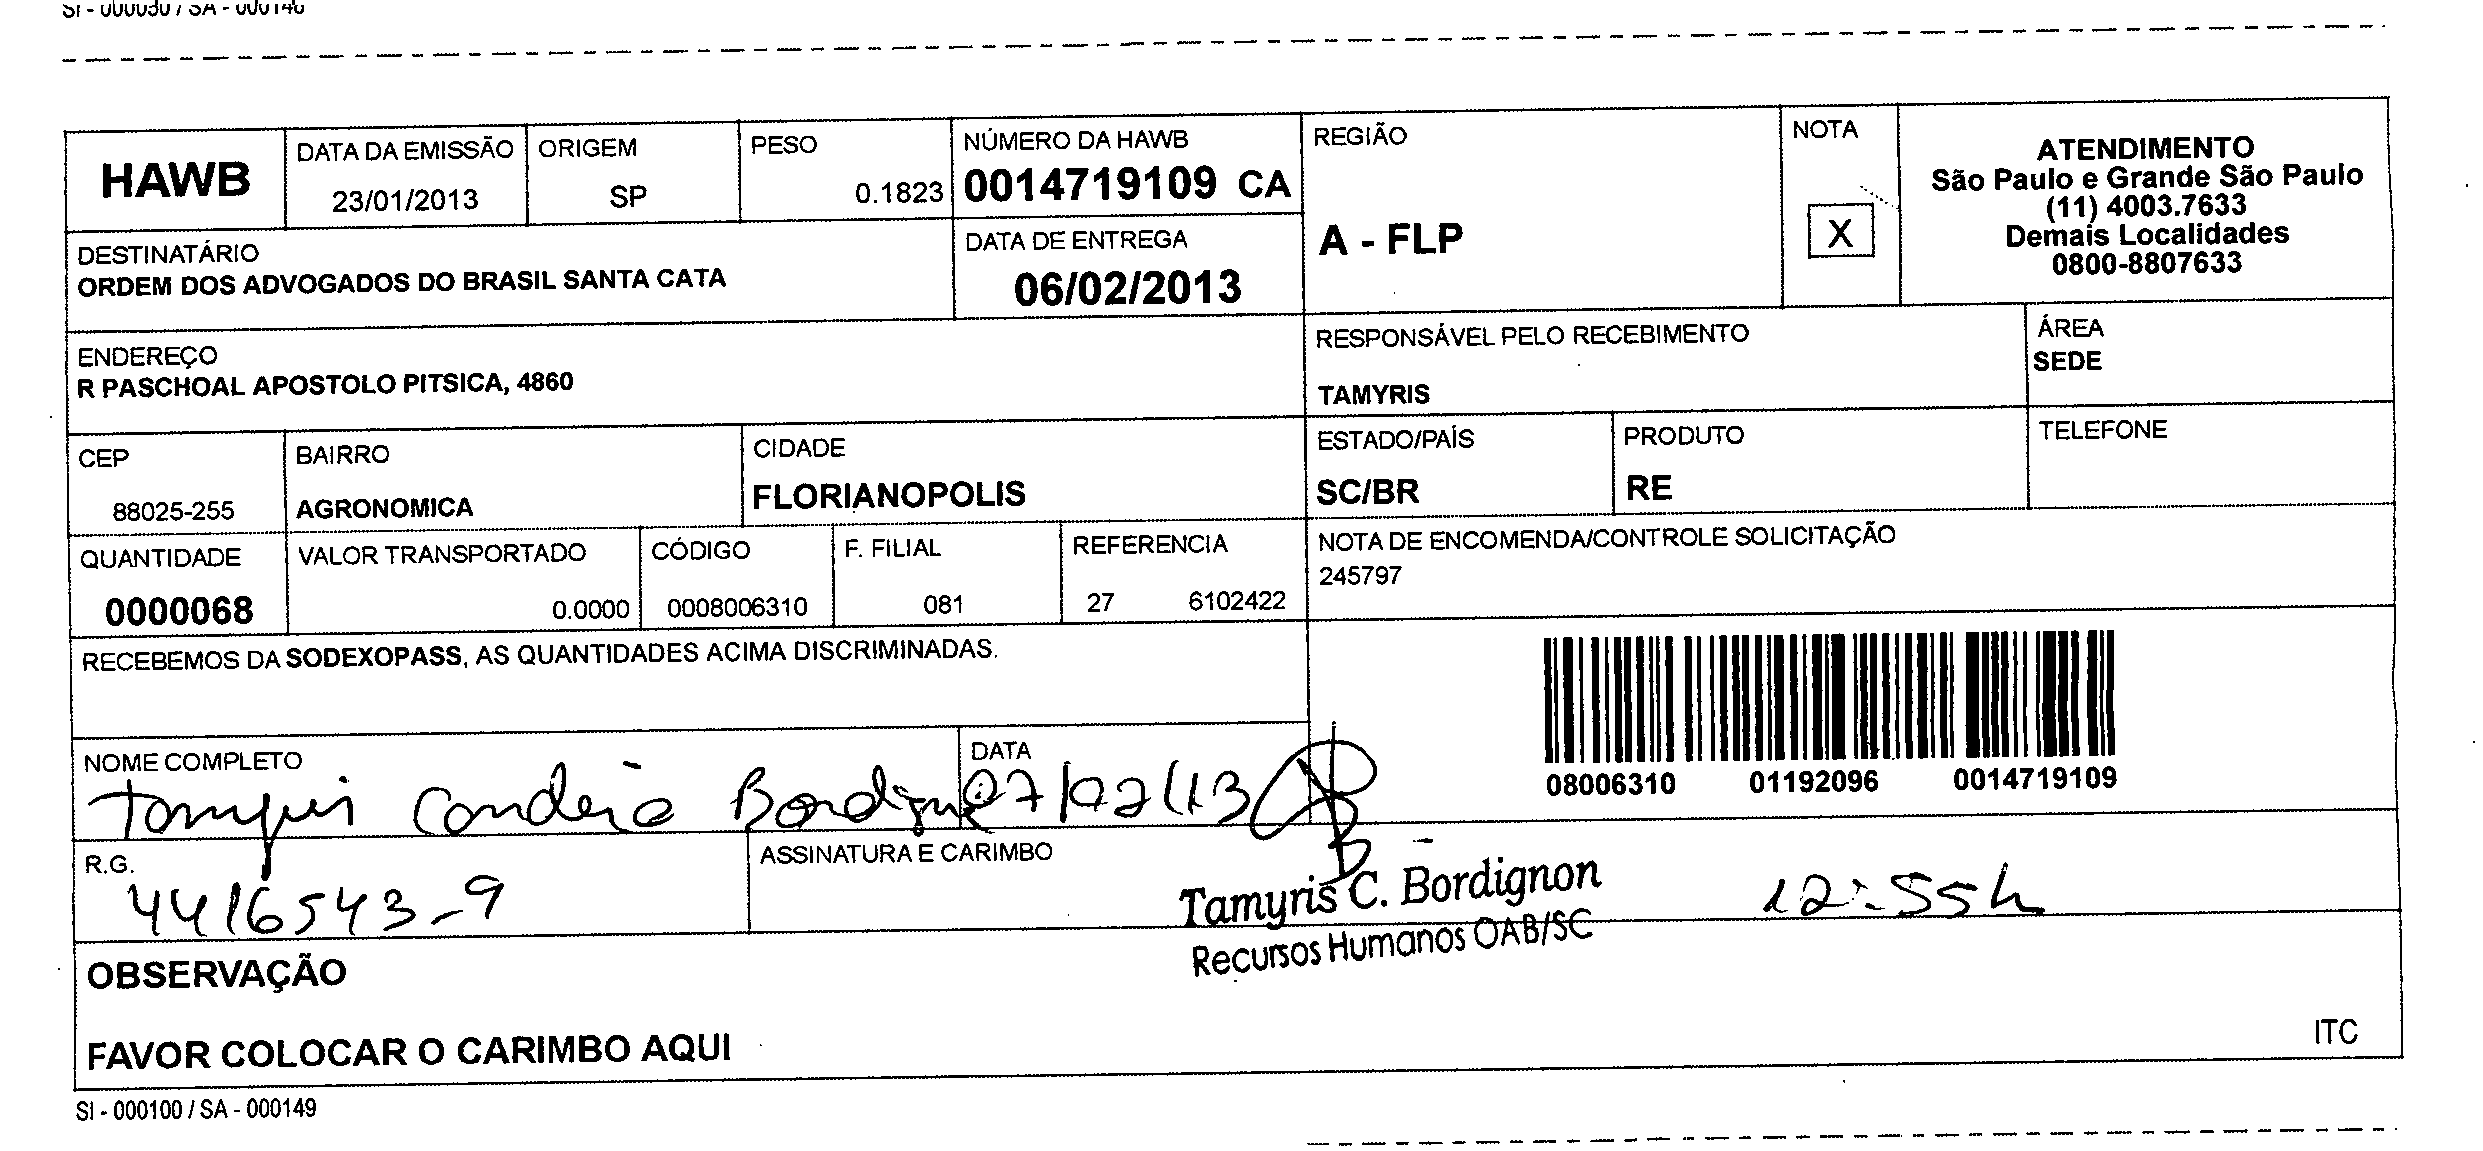 HAWB
DATA DA EMISSÃO
23/01/2013
ORIGEM
SP
PESO
0.1823
NÚMERO DA HAWB
0014719109 CA
REGIÃO
A - FLP
NOTA
X
ATENDIMENTO
São Paulo e Grande São Paulo
(11) 4003.7633
Demais Localidades
0800-8807633
DESTINATÁRIO
ORDEM DOS ADVOGADOS DO BRASIL SANTA CATA
DATA DE ENTREGA
06/02/2013
ENDEREÇO
R PASCHOAL APOSTOLO PITSICA, 4860
RESPONSÁVEL PELO RECEBIMENTO
TAMYRIS
ÁREA
SEDE
CEP
88025-255
BAIRRO
AGRONOMICA
CIDADE
FLORIANOPOLIS
ESTADO/PAÍS
SC/BR
PRODUTO
RE
TELEFONE
QUANTIDADE
0000068
VALOR TRANSPORTADO
0.0000
CÓDIGO
0008006310
F. FILIAL
081
REFERENCIA
27 6102422
NOTA DE ENCOMENDA/CONTROLE SOLICITAÇÃO
245797
RECEBEMOS DA SODEXOPASS, AS QUANTIDADES ACIMA DISCRIMINADAS.
08006310 01192096 0014719109
NOME COMPLETO
Tamyris
DATA
07/02/13
R.G.
4416543-9
ASSINATURA E CARIMBO
Tamyris C. Bordignon
Recursos Humanos OAB/SC
12:55h
OBSERVAÇÃO
FAVOR COLOCAR O CARIMBO AQUI
ITC
SI - 000100 / SA - 000149